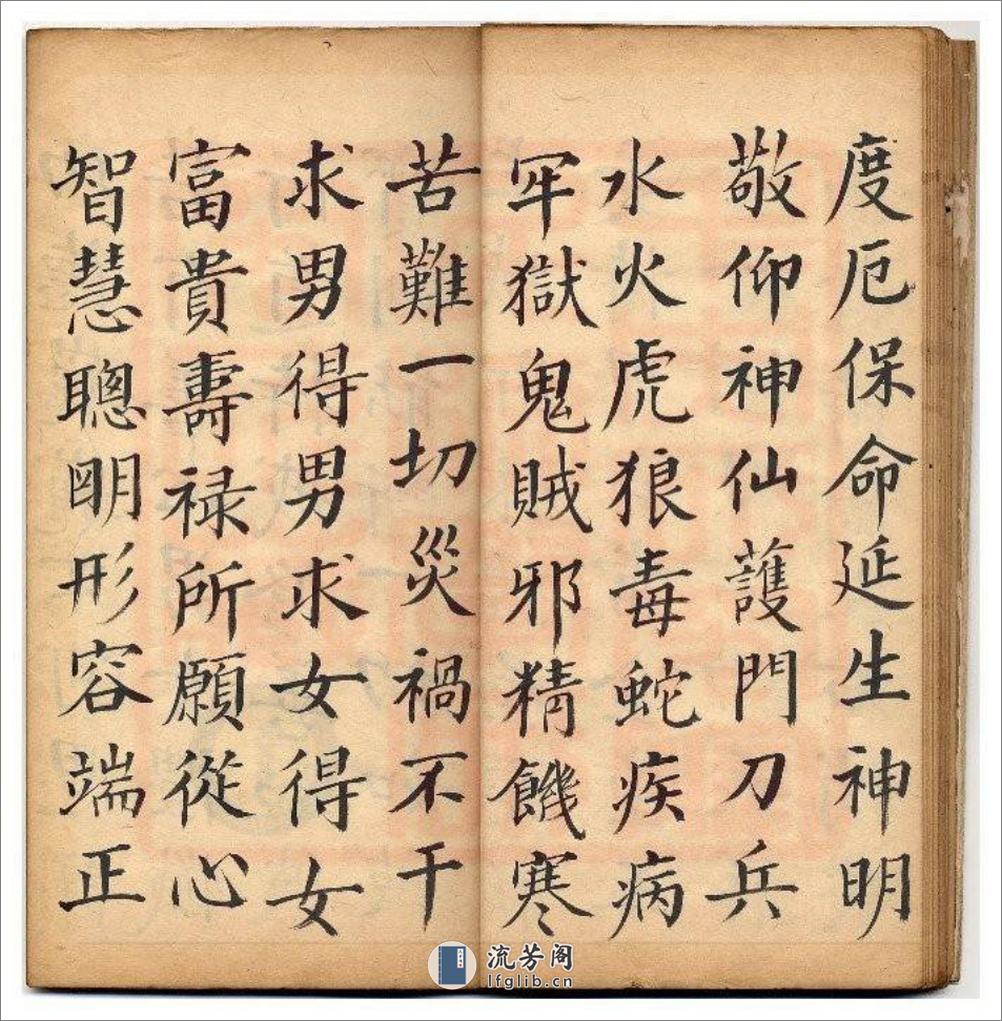 度厄保命延生神明
敬仰神仙護門刀兵
水火虎狼毒蛇疾病
牢獄鬼賊邪精饑寒
苦難一切災禍不干
求男得男求女得女
富貴壽禄所願從心
智慧聰明形容端正
流芳阁
lfglib.cn